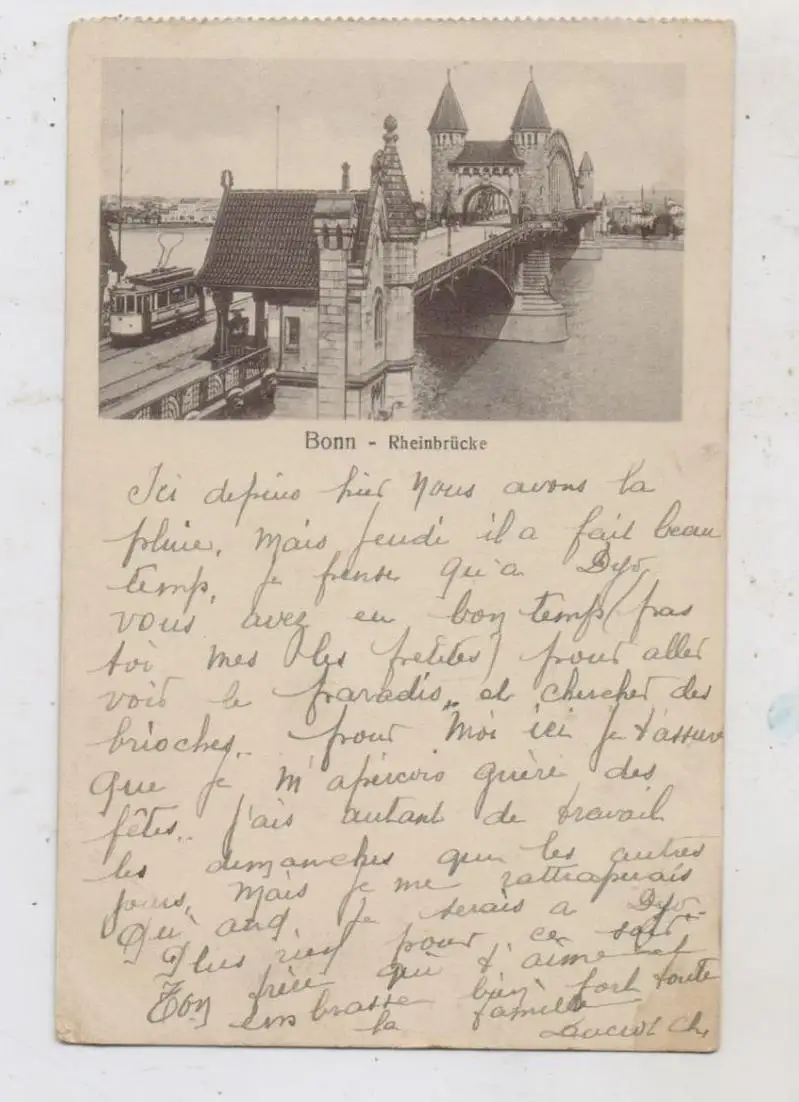 Bonn - Rheinbrücke
Ici depius hier Nous avons la
pluie, Mais Jeudi il a fait beau
temp, je pense qu'a
vous avez eu bon temp (pas
toi mes les petites) pour aller
voir le paradis,, et chercher des
brioches.. pour Moi ici je t'assure
que je m'apercois guère des
fêtes.. j'ais autant de travail
les dimanches que les autres
jours, Mais je me rattraperais
Qu'and Je serais a
Plus rien pour ce soir
Ton frère qui t'aime et
embrasse bien fort toute
la famille
Ch.